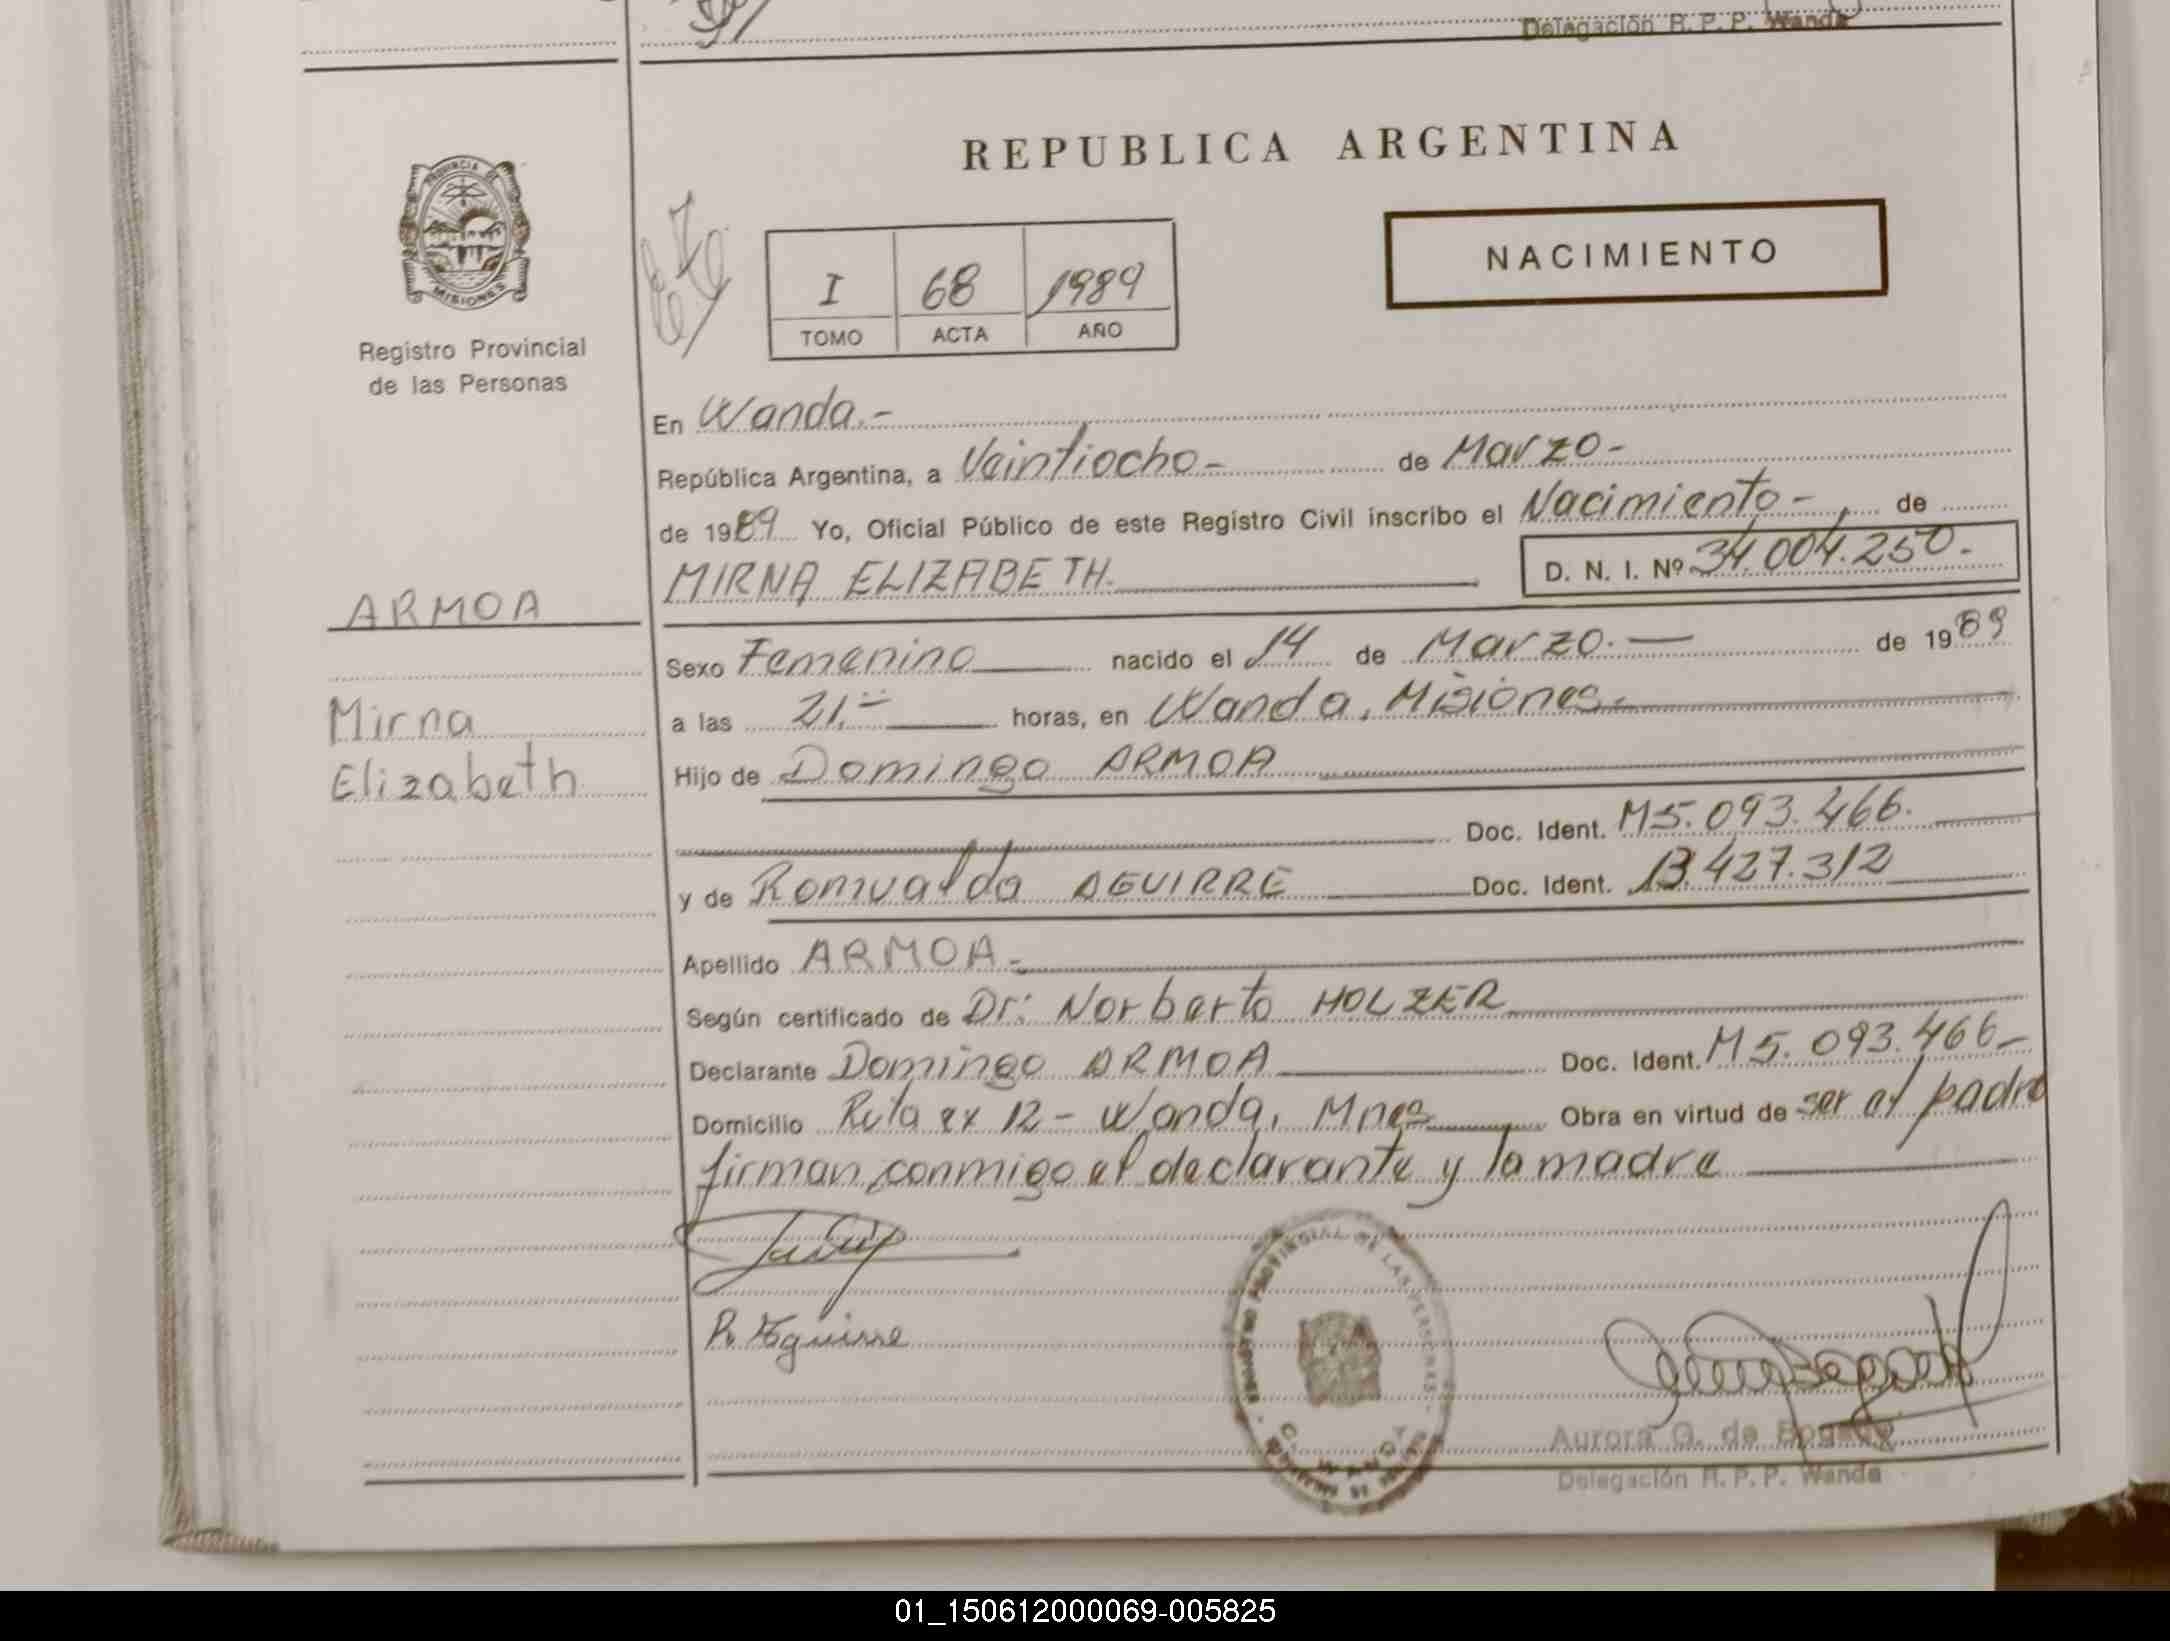 Delegación R. P. P. Wanda
PROVINCIA DE
MISIONES
Registro Provincial
de las Personas
REPUBLICA ARGENTINA
NACIMIENTO
I 68 1989
TOMO ACTA AÑO
En Wanda.-
República Argentina, a Veintiocho- de Marzo-
de 1989 Yo, Oficial Público de este Registro Civil inscribo el Nacimiento- de
MIRNA ELIZABETH. D. N. I. Nº 34.004.250.-
ARMOA
Mirna
Elizabeth
Sexo Femenino nacido el 14 de Marzo.- de 1989
a las 21.- horas, en Wanda, Misiones.-
Hijo de Domingo ARMOA
Doc. Ident. M5.093.466.
y de Romualda AGUIRRE Doc. Ident. 13.427.312
Apellido ARMOA-
Según certificado de Dr: Norberto HOLZER
Declarante Domingo ARMOA Doc. Ident. M5.093.466-
Domicilio Ruta ex 12- Wanda, Mnes Obra en virtud de ser el padre
firman conmigo el declarante y la madre
R. Aguirre
REGISTRO PROVINCIAL DE LAS PERSONAS
Aurora G. de
Delegación R. P. P. Wanda
01_150612000069-005825